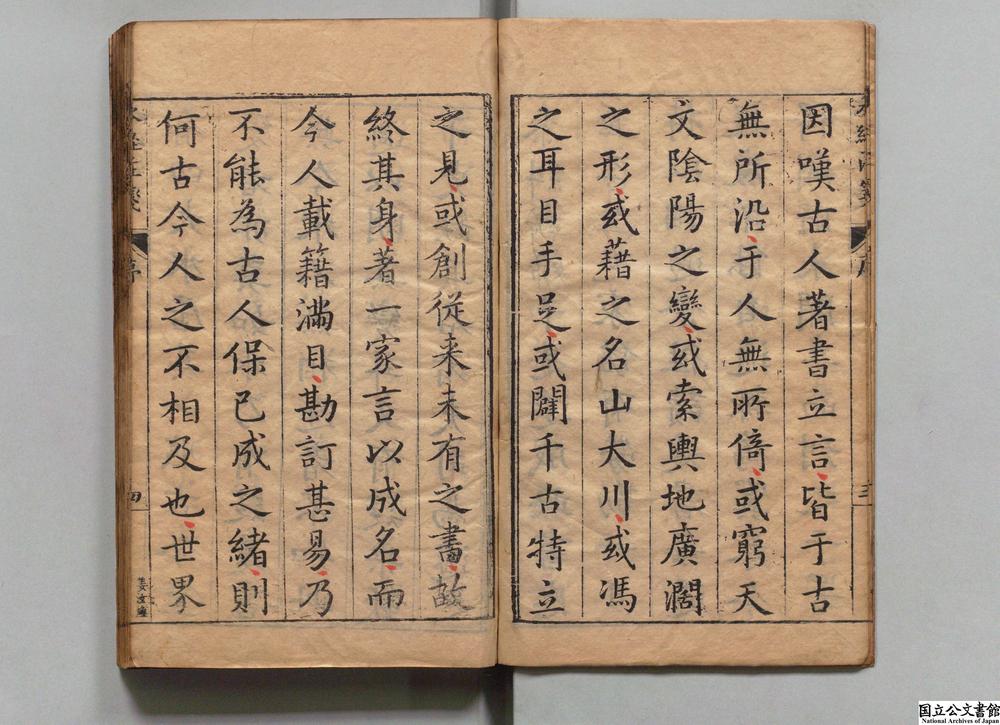 因嘆古人著書立言皆于古
無所沿于人無所倚或窮天
文陰陽之變或索輿地廣濶
之形或藉之名山大川或馮
之耳目手足或闢千古特立
之見或創從来未有之書故
終其身著一家言以成名而
今人載籍滿目勘訂甚易乃
不能為古人保已成之緒則
何古今人之不相及也世界
序
三
序
四
国立公文書館
National Archives of Japan